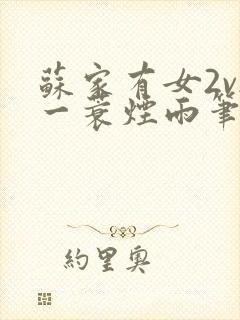 蘇家有女2v
一蓑煙雨筆
約里奧